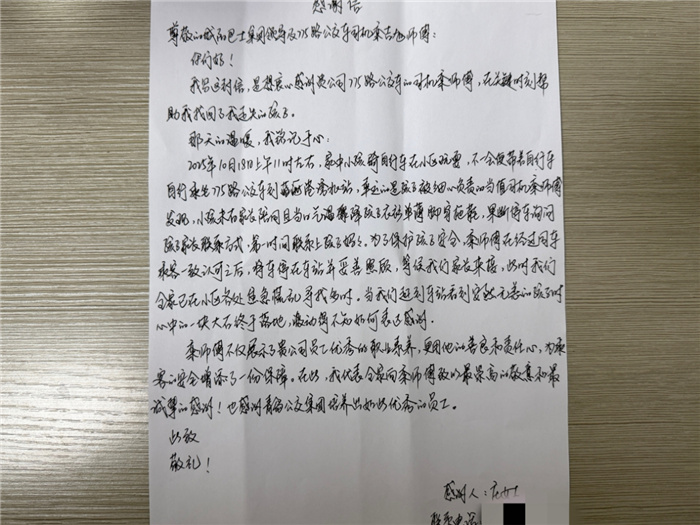 感谢信
尊敬的威海巴士集团领导及775路公交车司机秦吉旭师傅:
你们好!
我写这封信,是想衷心感谢贵公司775路公交车的司机秦师傅,在关键时刻帮
助我找回了我走失的孩子。
那天的温暖,我铭记于心:
2025年10月18日上午11时左右,家中小孩骑自行车在小区玩耍,不一会便带着自行车
自行乘坐775路公交车到站,幸运的是孩子被细心负责的当值司机秦师傅
发现,小孩未有家长陪同且当日气温骤降孩子衣衫单薄脚穿拖鞋,果断停车询问
孩子家长联系方式,第一时间联系上孩子妈妈。为了保护孩子安全,秦师傅在经过同车
乘客一致认可之后,将车停在车站并妥善照顾,等候我们家长来接,此时我们
全家已在小区各处焦急慌乱寻找多时。当我们赶到车站看到安然无恙的孩子时
心中的一块大石终于落地,激动得不知如何表达感谢。
秦师傅不仅展示了贵公司员工优秀的职业素养,更用他的善良和责任心,为乘
客的安全增添了一份保障。在此,我代表全家向秦师傅致以最崇高的敬意和最
诚挚的感谢!也感谢公交集团培养出如此优秀的员工。
此致
敬礼!
感谢人:
联系电话